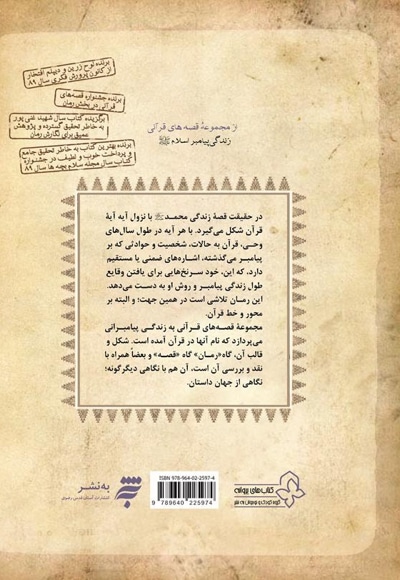 برنده لوح زرین و دیپلم افتخار
از کانون پرورش فکری سال ۸۹
برنده جشنواره قصه‌های
قرآنی در بخش رمان
برگزیده کتاب سال شهید غنی پور
به خاطر تحقیق گسترده و پژوهش
عمیق برای نگارش رمان
برنده بهترین کتاب به خاطر تحقیق جامع
و پرداخت خوب و لطیف در جشنواره
کتاب سال مجله سلام بچه ها سال ۸۹
از مجموعهٔ قصه های قرآنی
زندگی پیامبر اسلام ﷺ
در حقیقت قصهٔ زندگی محمد ﷺ با نزول آیه آیهٔ
قرآن شکل می‌گیرد. با هر آیه در طول سال‌های
وحی، قرآن به حالات، شخصیت و حوادثی که بر
پیامبر می‌گذشته، اشاره‌های ضمنی یا مستقیم
دارد، که این، خود سرنخ‌هایی برای یافتن وقایع
طول زندگی پیامبر و روش او به دست می‌دهد.
این رمان تلاشی است در همین جهت؛ و البته بر
محور و خط قرآن.
مجموعهٔ قصه‌های قرآنی به زندگی پیامبرانی
می‌پردازد که نام آنها در قرآن آمده است. شکل و
قالب آن، گاه «رمان» گاه «قصه» و بعضاً همراه با
نقد و بررسی آن است، آن هم با نگاهی دیگرگونه؛
نگاهی از جهان داستان.
به‌نشر
انتشارات آستان قدس رضوی
ISBN 978-964-02-2597-4
9 789640 225974
کتاب‌های پروانه
گروه کودک و نوجوان به نشر